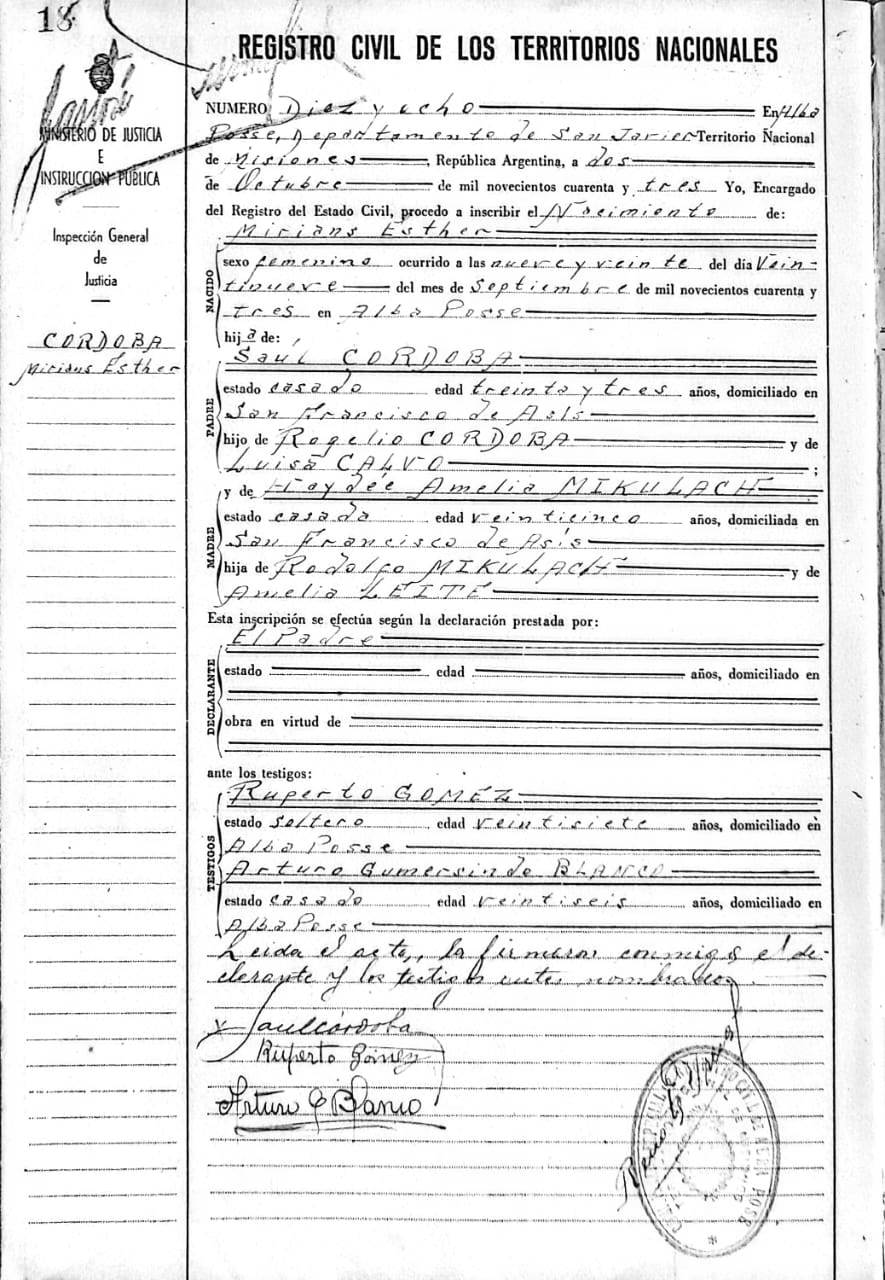 18
REGISTRO CIVIL DE LOS TERRITORIOS NACIONALES
MINISTERIO DE JUSTICIA
E
INSTRUCCION PUBLICA
Inspección General
de
Justicia
CORDOBA
Mirians Esther
NUMERO Diez y ocho En Alba
Posse, Departamento de San Javier Territorio Nacional
de Misiones, República Argentina, a dos
de Octubre de mil novecientos cuarenta y tres Yo, Encargado
del Registro del Estado Civil, procedo a inscribir el Nacimiento de:
Mirians Esther
NACIDO
sexo femenino ocurrido a las nueve y veinte del día Vein-
tinueve del mes de Septiembre de mil novecientos cuarenta y
tres en Alba Posse
hija de:
Saúl CORDOBA
PADRE
estado casado edad treinta y tres años, domiciliado en
San Francisco de Asís
hijo de Rogelio CORDOBA y de
Luisa CALVO ;
y de Haydée Amelia MIKULACH
MADRE
estado casada edad veinticinco años, domiciliada en
San Francisco de Asís
hija de Rodolfo MIKULACH y de
Amelia LEITE
Esta inscripción se efectúa según la declaración prestada por:
El Padre
DECLARANTE
estado edad años, domiciliado en
obra en virtud de
ante los testigos:
Ruperto GOMEZ
TESTIGOS
estado Soltero edad veintisiete años, domiciliado en
Alba Posse
Arturo Gumersindo BLANCO
estado casado edad veintiseis años, domiciliado en
Alba Posse
Leida el acta, la firmaron conmigo el de-
clarante y los testigos antes nombrados.
Saul Córdoba
Ruperto Gómez
Arturo G Blanco